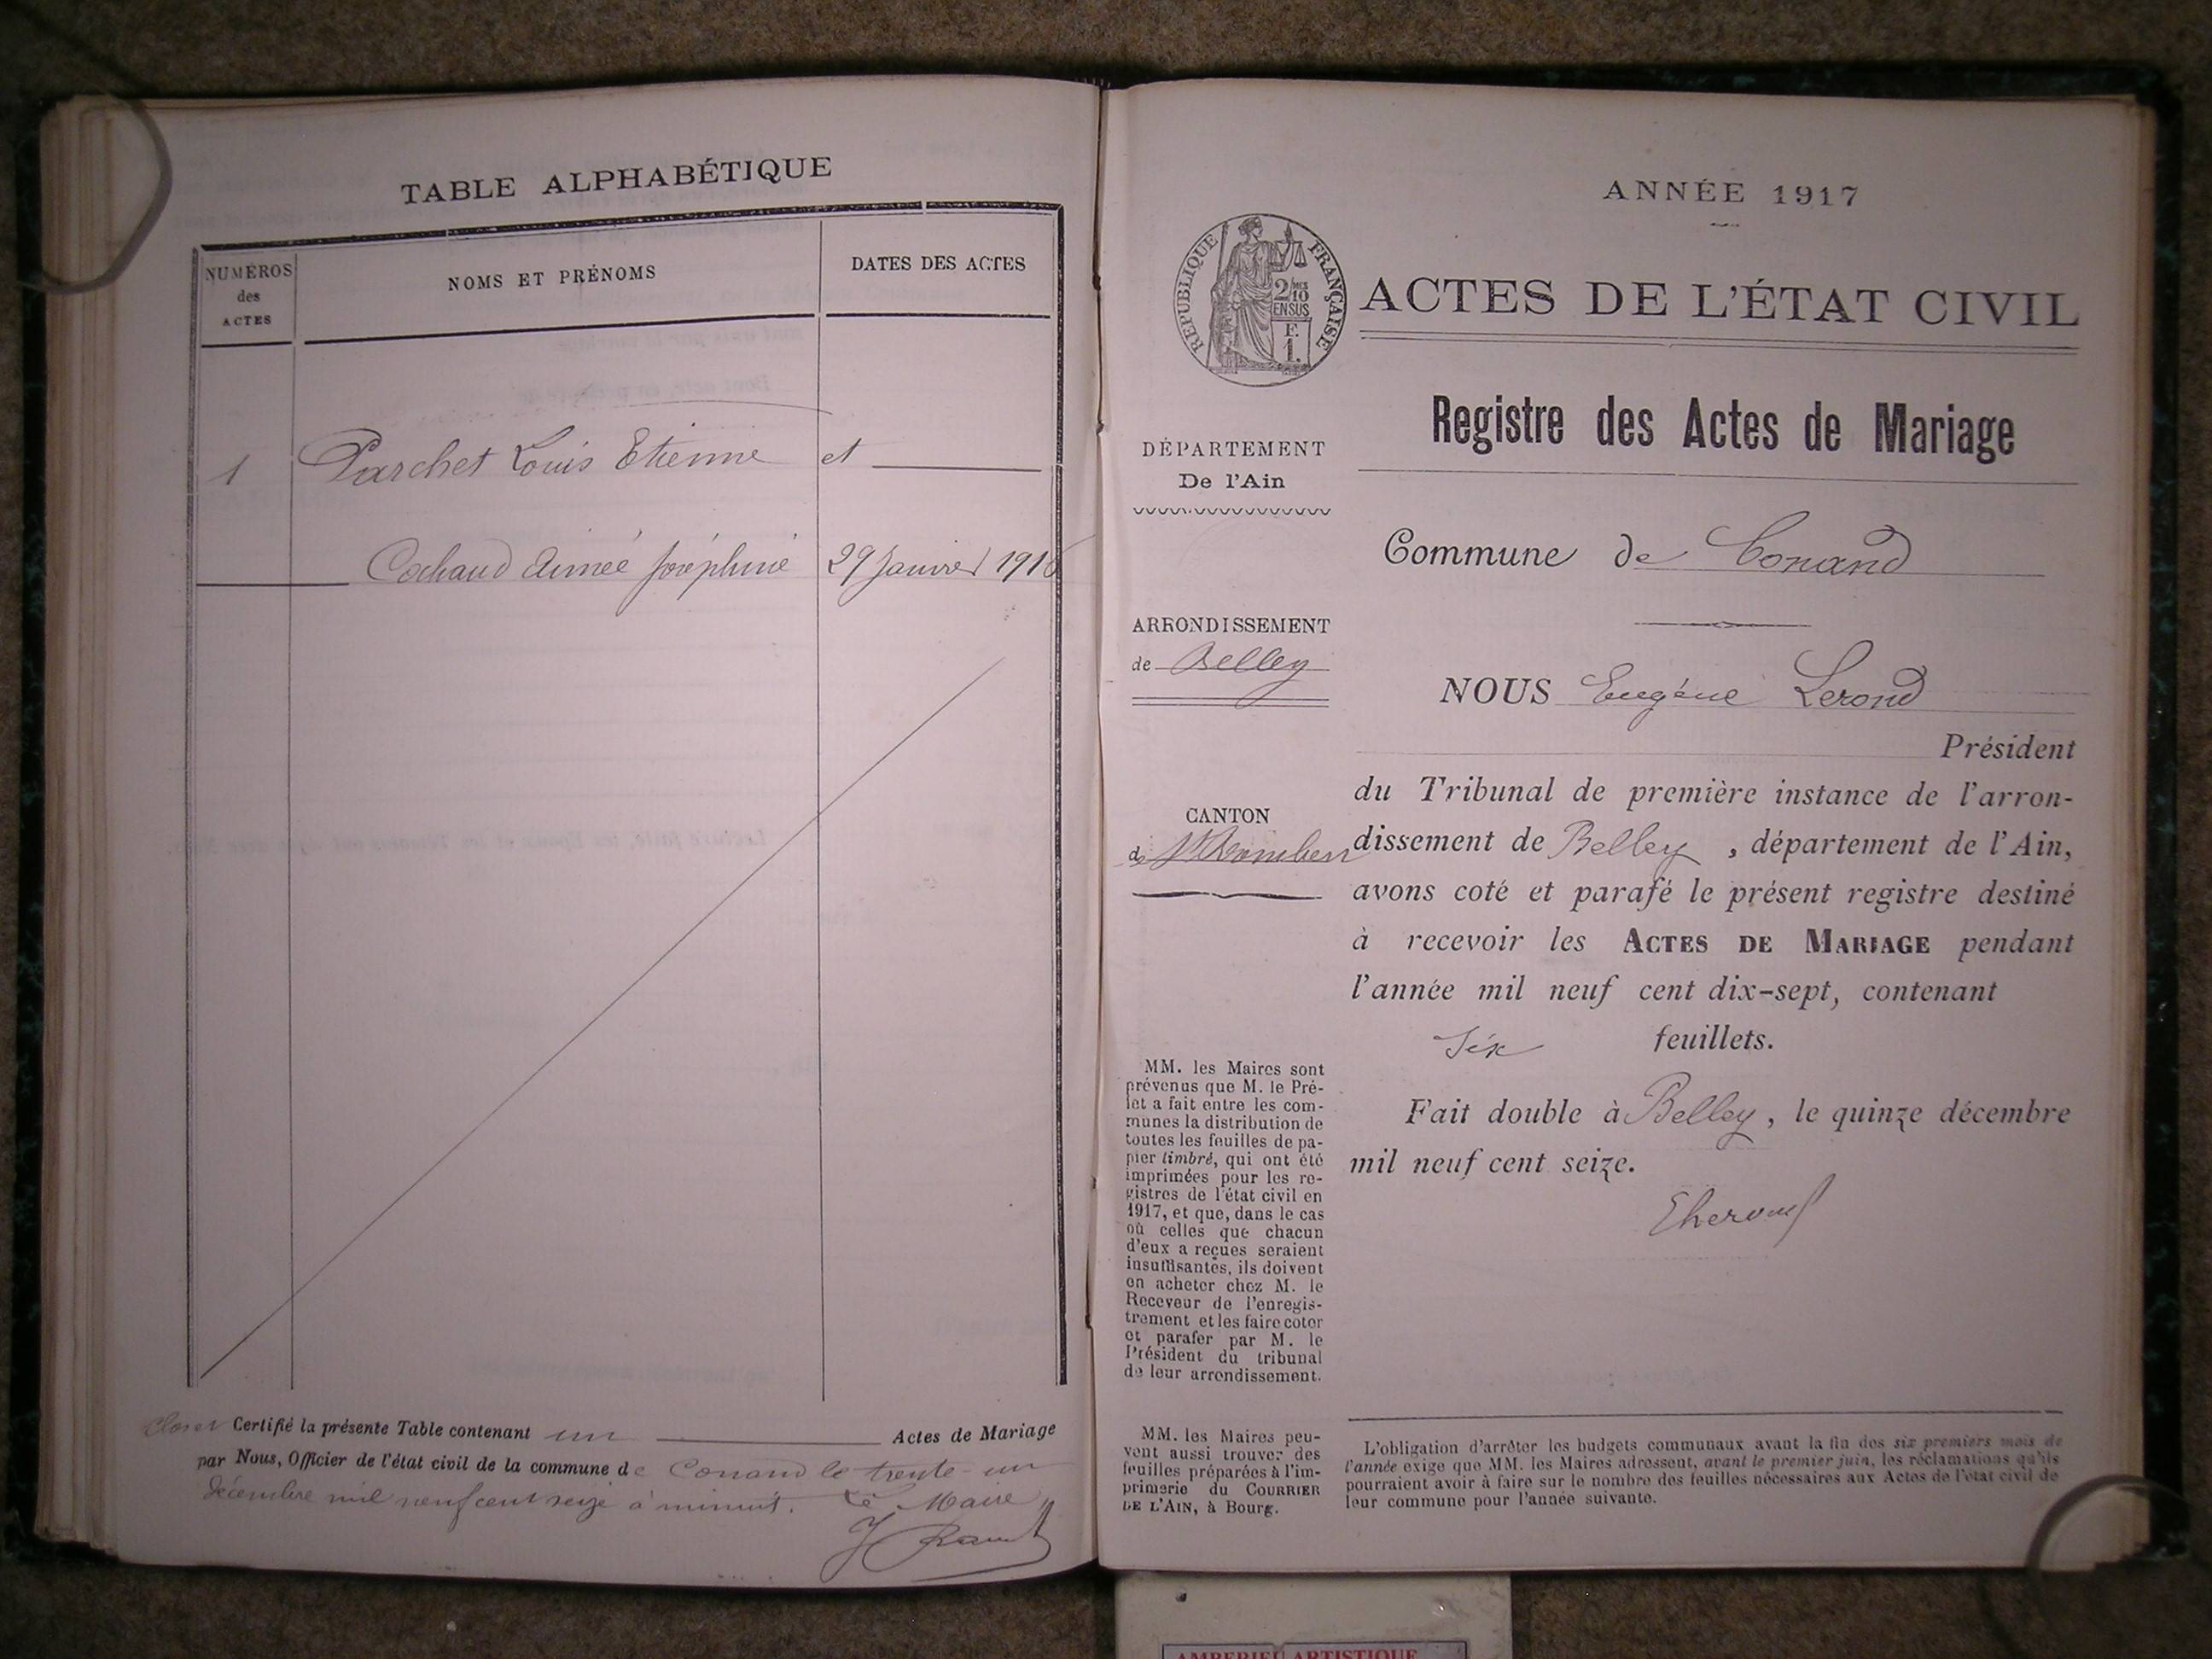 TABLE ALPHABÉTIQUE
NUMÉROS
des
ACTES
NOMS ET PRÉNOMS
DATES DES ACTES
1 Parchet Louis Etienne et
Cochaud Aimée Joséphine 29 Janvier 1916
Certifié la présente Table contenant un Actes de Mariage
par Nous, Officier de l'état civil de la commune de Conand le trente-un
décembre mil neuf cent seize à minuit. Le Maire
ANNÉE 1917
RÉPUBLIQUE FRANÇAISE
2/10
EN SUS
F.
1.
ACTES DE L'ÉTAT CIVIL
Registre des Actes de Mariage
DÉPARTEMENT
De l'Ain
Commune de Conand
ARRONDISSEMENT
de Belley
CANTON
de St Rambert
NOUS Eugène Lerond
Président
du Tribunal de première instance de l'arron-
dissement de Belley, département de l'Ain,
avons coté et parafé le présent registre destiné
à recevoir les ACTES DE MARIAGE pendant
l'année mil neuf cent dix-sept, contenant
Six feuillets.
Fait double à Belley, le quinze décembre
mil neuf cent seize.
MM. les Maires sont
prévenus que M. le Pré-
fet a fait entre les com-
munes la distribution de
toutes les feuilles de pa-
pier timbré, qui ont été
imprimées pour les re-
gistres de l'état civil en
1917, et que, dans le cas
où celles que chacun
d'eux a reçues seraient
insuffisantes, ils doivent
en acheter chez M. le
Receveur de l'enregis-
trement et les faire coter
et parafer par M. le
Président du tribunal
de leur arrondissement.
MM. les Maires peu-
vent aussi trouver des
feuilles préparées à l'im-
primerie du COURRIER
DE L'AIN, à Bourg.
L'obligation d'arrêter les budgets communaux avant la fin des six premiers mois de
l'année exige que MM. les Maires adressent, avant le premier juin, les réclamations qu'ils
pourraient avoir à faire sur le nombre des feuilles nécessaires aux Actes de l'état civil de
leur commune pour l'année suivante.
AMBERIEU ARTISTIQUE